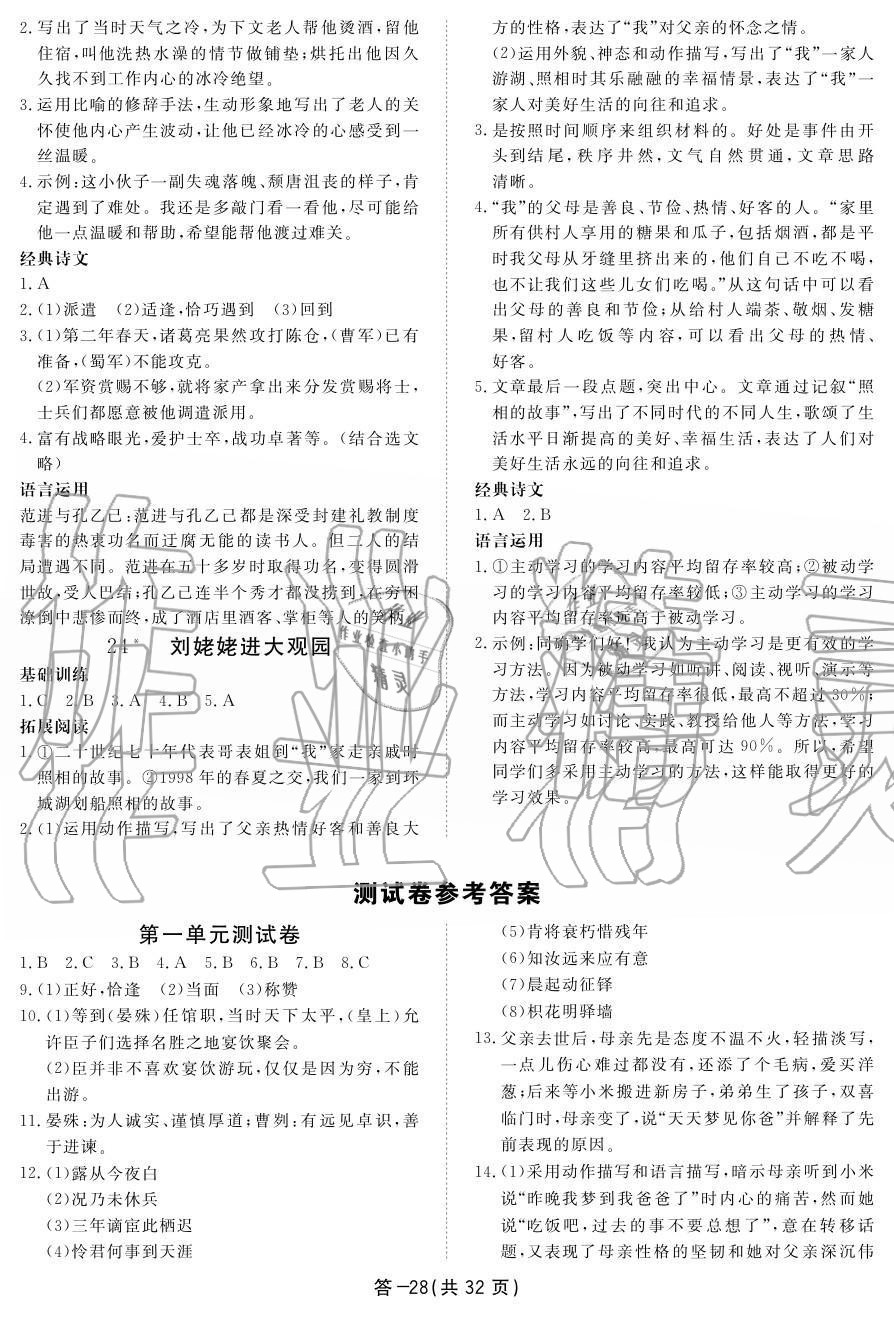 2. 写出了当时天气之冷,为下文老人帮他烫酒,留他
住宿,叫他洗热水澡的情节做铺垫;烘托出他因久
久找不到工作内心的冰冷绝望。
3. 运用比喻的修辞手法,生动形象地写出了老人的关
怀使他内心产生波动,让他已经冰冷的心感受到一
丝温暖。
4. 示例:这小伙子一副失魂落魄、颓唐沮丧的样子,肯
定遇到了难处。我还是多敲门看一看他,尽可能给
他一点温暖和帮助,希望能帮他渡过难关。
经典诗文
1. A
2. (1)派遣 (2)适逢,恰巧遇到 (3)回到
3. (1)第二年春天,诸葛亮果然攻打陈仓,(曹军)已有
准备,(蜀军)不能攻克。
(2)军资赏赐不够,就将家产拿出来分发赏赐将士,
士兵们都愿意被他调遣派用。
4. 富有战略眼光,爱护士卒,战功卓著等。(结合选文
略)
语言运用
范进与孔乙己:范进与孔乙己都是深受封建礼教制度
毒害的热衷功名而迂腐无能的读书人。但二人的结
局遭遇不同。范进在五十多岁时取得功名,变得圆滑
世故,受人巴结;孔乙己连半个秀才都没捞到,在穷困
潦倒中悲惨而终,成了酒店里酒客、掌柜等人的笑柄。
24* 刘姥姥进大观园
基础训练
1. C 2. B 3. A 4. B 5. A
拓展阅读
1. ①二十世纪七十年代表哥表姐到“我”家走亲戚时
照相的故事。②1998年的春夏之交,我们一家到环
城湖划船照相的故事。
2. (1)运用动作描写,写出了父亲热情好客和善良大
方的性格,表达了“我”对父亲的怀念之情。
(2)运用外貌、神态和动作描写,写出了“我”一家人
游湖、照相时其乐融融的幸福情景,表达了“我”一
家人对美好生活的向往和追求。
3. 是按照时间顺序来组织材料的。好处是事件由开
头到结尾,秩序井然,文气自然贯通,文章思路
清晰。
4. “我”的父母是善良、节俭、热情、好客的人。“家里
所有供村人享用的糖果和瓜子,包括烟酒,都是平
时我父母从牙缝里挤出来的,他们自己不吃不喝,
也不让我们这些儿女们吃喝。”从这句话中可以看
出父母的善良和节俭;从给村人端茶、敬烟、发糖
果,留村人吃饭等内容,可以看出父母的热情、
好客。
5. 文章最后一段点题,突出中心。文章通过记叙“照
相的故事”,写出了不同时代的不同人生,歌颂了生
活水平日渐提高的美好、幸福生活,表达了人们对
美好生活永远的向往和追求。
经典诗文
1. A 2. B
语言运用
1. ①主动学习的学习内容平均留存率较高;②被动学
习的学习内容平均留存率较低;③主动学习的学习
内容平均留存率远高于被动学习。
2. 示例:同学们好!我认为主动学习是更有效的学
习方法。因为被动学习如听讲、阅读、视听、演示等
方法,学习内容平均留存率很低,最高不超过30%;
而主动学习如讨论、实践、教授给他人等方法,学习
内容平均留存率较高,最高可达90%。所以,希望
同学们多采用主动学习的方法,这样能取得更好的
学习效果。
测试卷参考答案
第一单元测试卷
1. B 2. C 3. B 4. A 5. B 6. B 7. B 8. C
9. (1)正好,恰逢 (2)当面 (3)称赞
10. (1)等到(晏殊)任馆职,当时天下太平,(皇上)允
许臣子们选择名胜之地宴饮聚会。
(2)臣并非不喜欢宴饮游玩,仅仅是因为穷,不能
出游。
11. 晏殊:为人诚实、谨慎厚道;曹刿:有远见卓识,善
于进谏。
12. (1)露从今夜白
(2)况乃未休兵
(3)三年谪宦此栖迟
(4)怜君何事到天涯
(5)肯将衰朽惜残年
(6)知汝远来应有意
(7)晨起动征铎
(8)枳花明驿墙
13. 父亲去世后,母亲先是态度不温不火,轻描淡写,
一点儿伤心难过都没有,还添了个毛病,爱买洋
葱;后来等小米搬进新房子,弟弟生了孩子,双喜
临门时,母亲变了,说“天天梦见你爸”并解释了先
前表现的原因。
14. (1)采用动作描写和语言描写,暗示母亲听到小米
说“昨晚我梦到我爸爸了”时内心的痛苦,然而她
说“吃饭吧,过去的事不要总想了”,意在转移话
题,又表现了母亲性格的坚韧和她对父亲深沉伟
答-28(共32页)
作业精灵
作业检查小助手
精灵